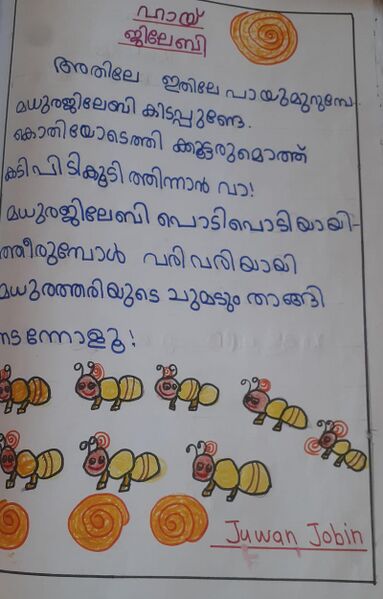 ഹായ്
ജിലേബി
അതിലേ ഇതിലേ പായുമുറുമ്പേ
മധുരജിലേബി കിടപ്പുണ്ടേ.
കൊതിയോടെത്തി ക്കൂട്ടരുമൊത്ത്
കടിപിടികൂടി ത്തിന്നാൻ വാ!
മധുരജിലേബി പൊടിപൊടിയായി-
ത്തീരുമ്പോൾ വരിവരിയായി
മധുരത്തരിയുടെ ചുമടും താങ്ങി
നടന്നോളൂ!
Juwan Jobin